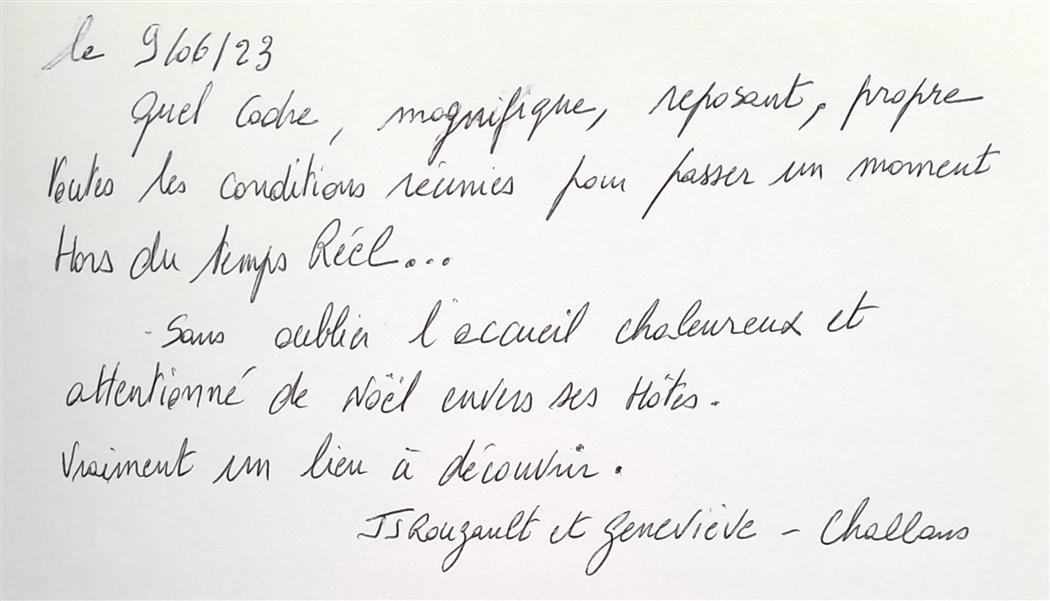 le 9/06/23
Quel Cadre, magnifique, reposant, propre
Toutes les conditions réunies pour passer un moment
Hors du temps Réel...
Sans oublier l'accueil chaleureux et
attentionné de Noël envers ses Hôtes.
Vraiment un lieu à découvrir.
et Geneviève - Challans